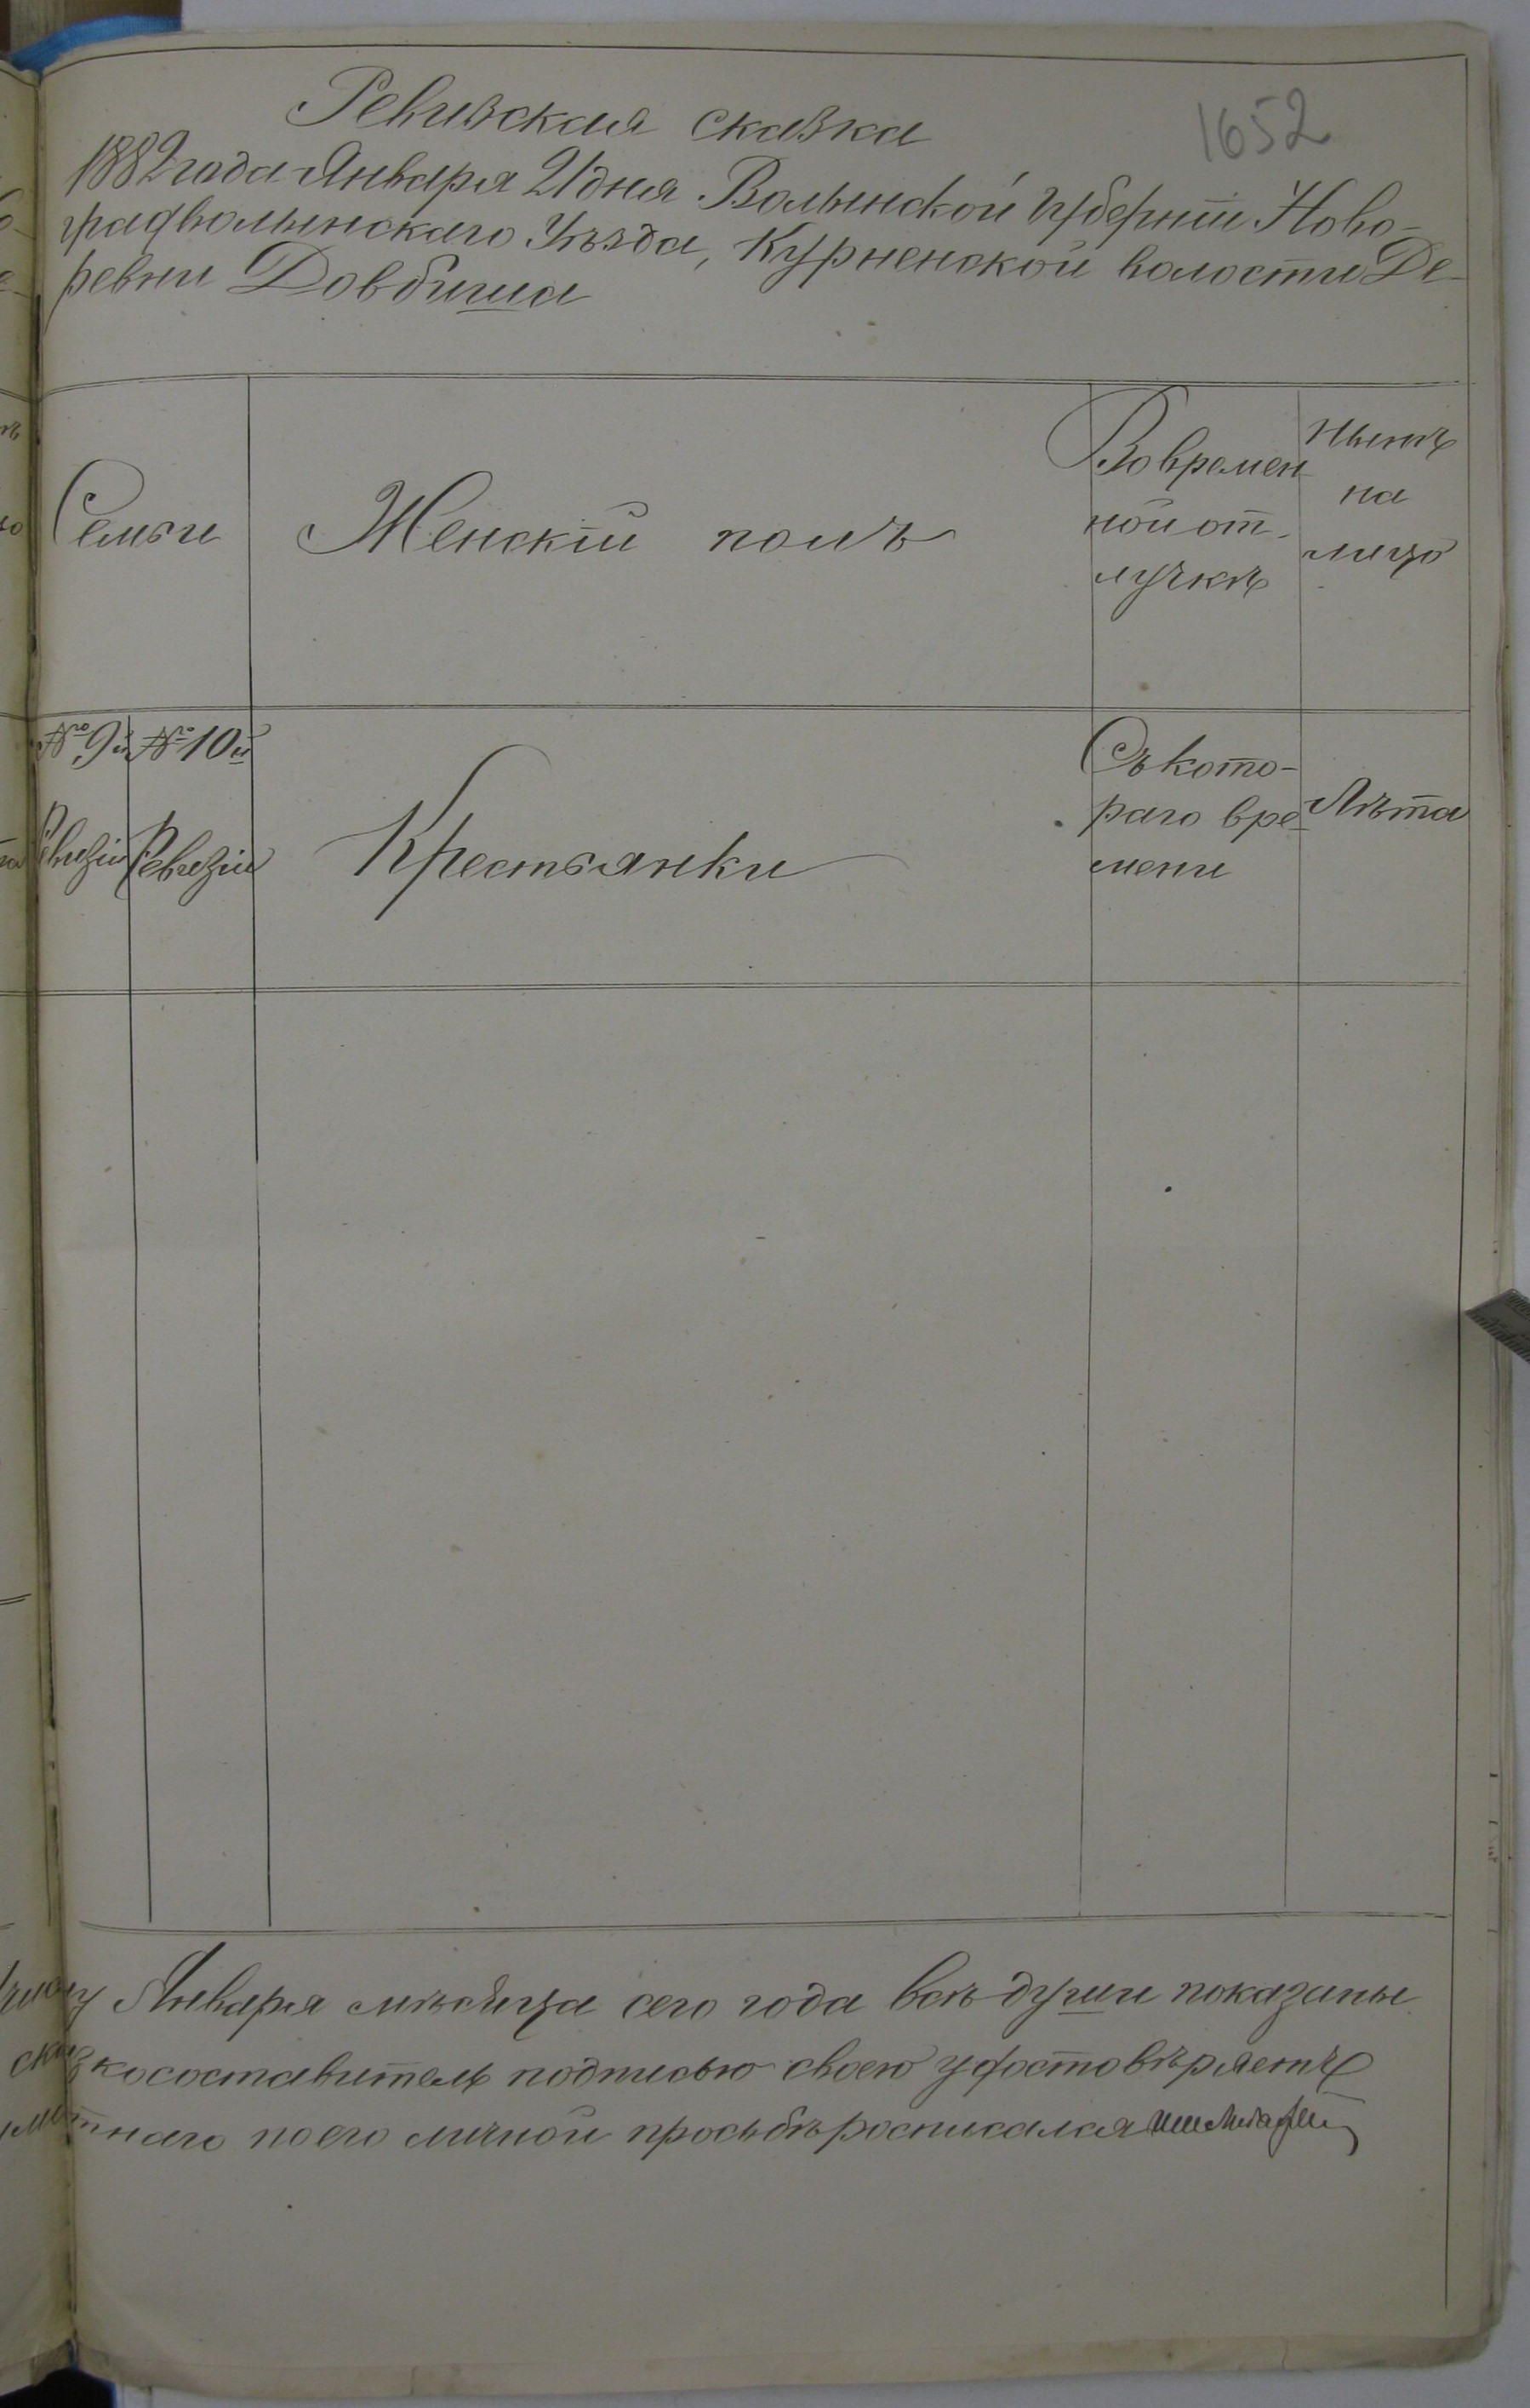 Ревизская сказка
1652
1882 года Января 21 дня Волынской губернии Ново-
градволынскаго Уѣзда, Курненской волости Де-
ревни Довбиша
Семьи
Женскій полъ
Во времен
ной от-
лучкѣ
Нынѣ
на
лицо
№ 9й
Ревизіи
№ 10й
Ревизіи
Крестьянки
Съ кото-
раго вре-
мени
Лѣта
Января мѣсяца сего года всѣ души показаны
косоставитель подписью своею удостовѣряетъ
наго по его личной просьбѣ росписался